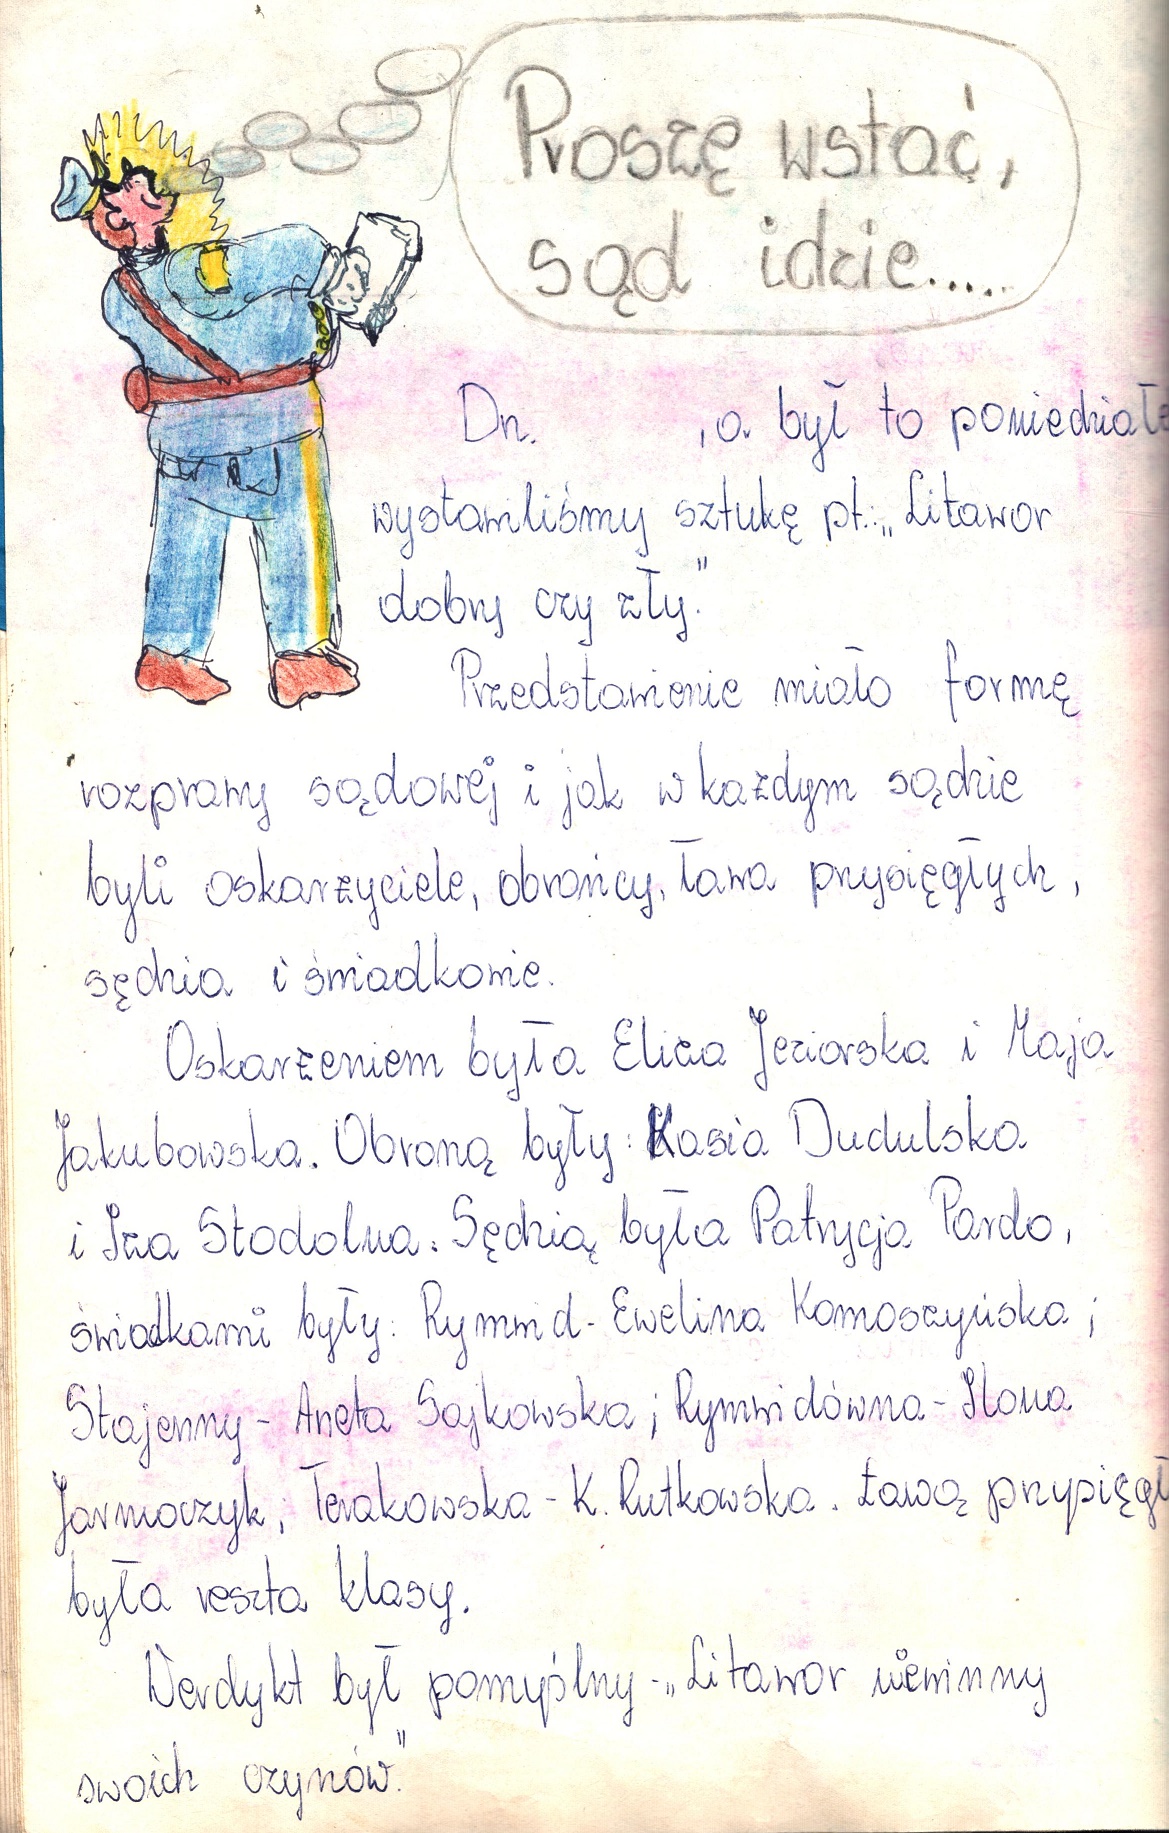 Proszę wstać,
sąd idzie.....
Dn. , a był to poniedziałe
wystawiliśmy sztukę pt.: „Litawor
dobry czy zły."
Przedstawienie miało formę
rozprawy sądowej i jak w każdym sądzie
byli oskarżyciele, obrońcy, ława przysięgłych,
sędzia i świadkowie.
Oskarżeniem była Eliza Jeziorska i Maja
Jakubowska. Obroną były: Kasia Dudulska
i Iza Stodolna. Sędzią była Patrycja Pardo,
świadkami były: Rymwid - Ewelina Komoszyńska;
Stajenny - Aneta Sajkowska; Rymwidówna - Ilona
Jarmoczyk, Terakowska - K. Rutkowska. Ławą przysięgł
była reszta klasy.
Werdykt był pomyślny - „Litawor niewinny
swoich czynów."